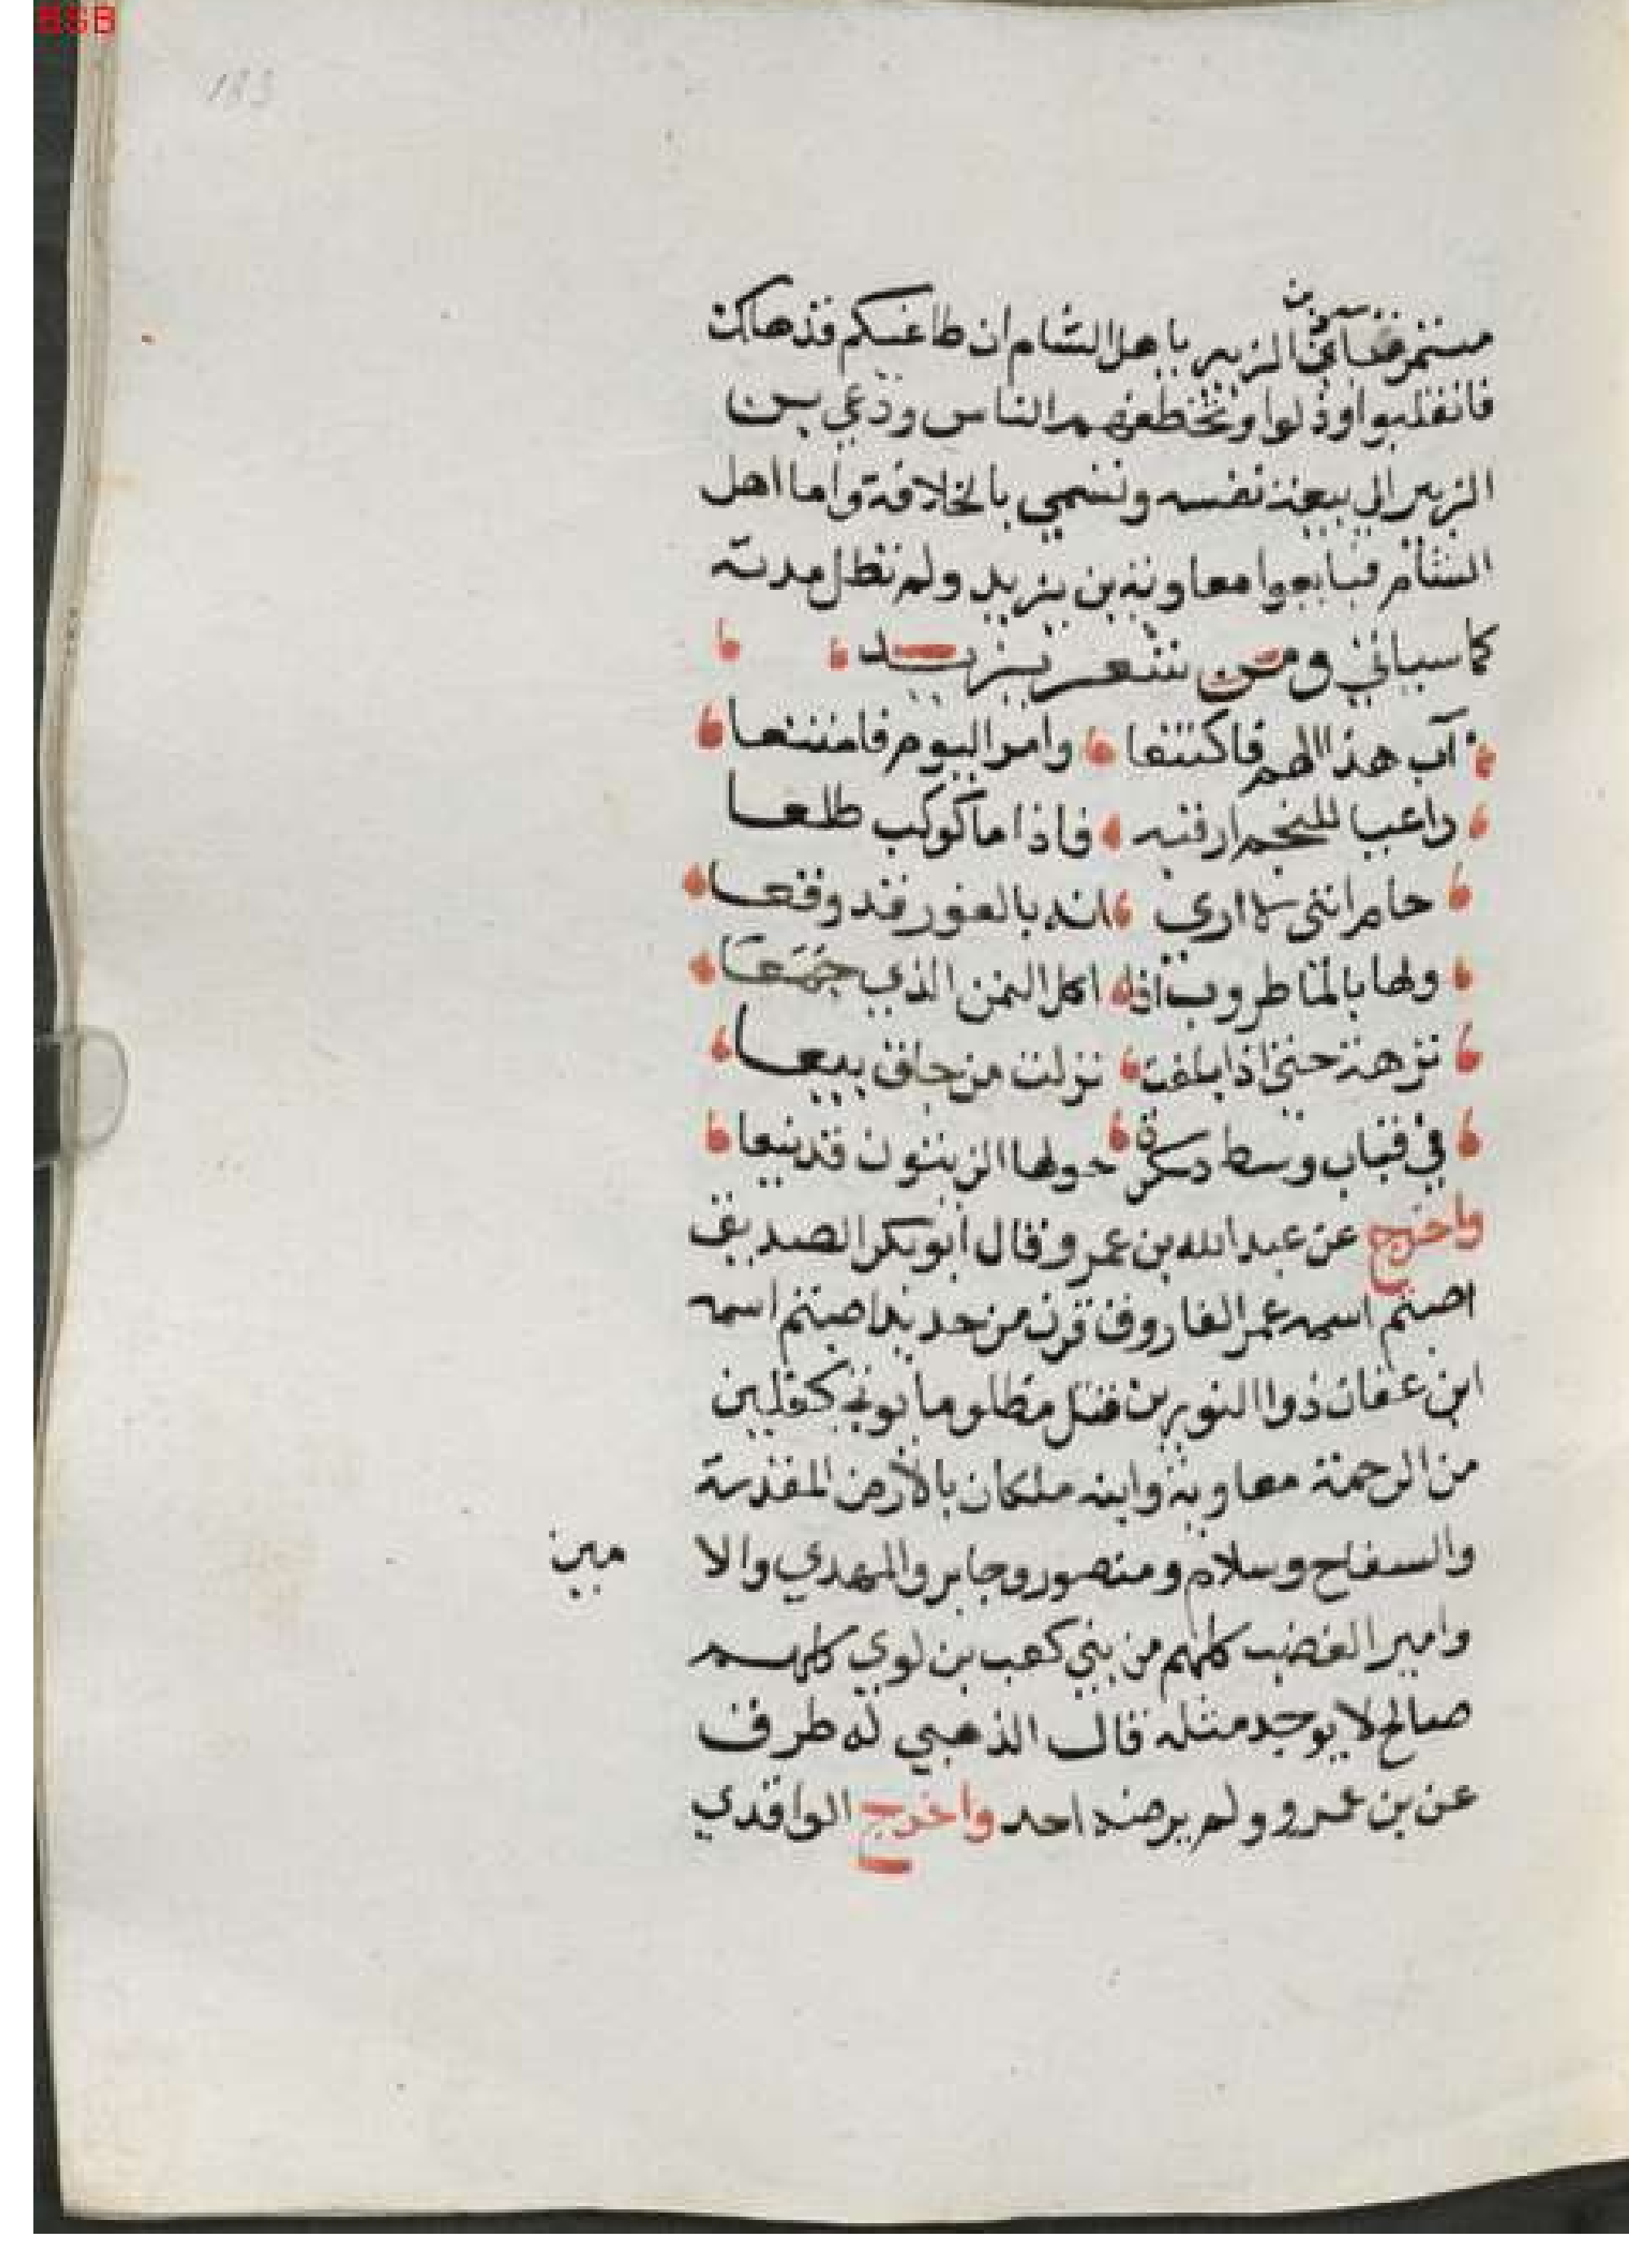 BSB
183
مستمر فنادى بن الزبير ياهل الشام ان طاغيكم قد هلك
فانفلبوا وذلوا وتخطفهم الناس ودعي بن
الزبير الي بيعة نفسه وتسمي بالخلافة وأما اهل
الشأم فبايعوا معاوية بن يزيد ولم تطل مدته
كما سياتي ومن شعر يزيد
آب هذا الهم فاكتنفا وامر اليوم فامتنعا
راعيا للنجم ارقبه فاذا ما كوكب طلعا
حام انني لا اري انه بالغور قد وقعا
ولها بالماطرون اذا اكل النمل الذي جمعا
نزهة حتى اذا بلغت نزلت من جلق بيعا
في قباب وسط دسكرة حولها الزيتون قد ينعا
واخرج عن عبد الله بن عمرو قال أبو بكر الصديق
اصبتم اسمه عمر الفاروق قرن من حديد اصبتم اسمه
ابن عفان ذوا النورين قتل مظلوما يوتي كفلين
من الرحمة معاوية وابنه ملكان بالأرض المقدسة
والسفاح وسلام ومنصور وجابر والمهدي والا مين
وامير الغضب كلهم من بني كعب بن لوي كلهم
صالح لا يوجد مثله قال الذهبي له طرق
عن بن عمرو ولم يرضه احد واخرج الواقدي